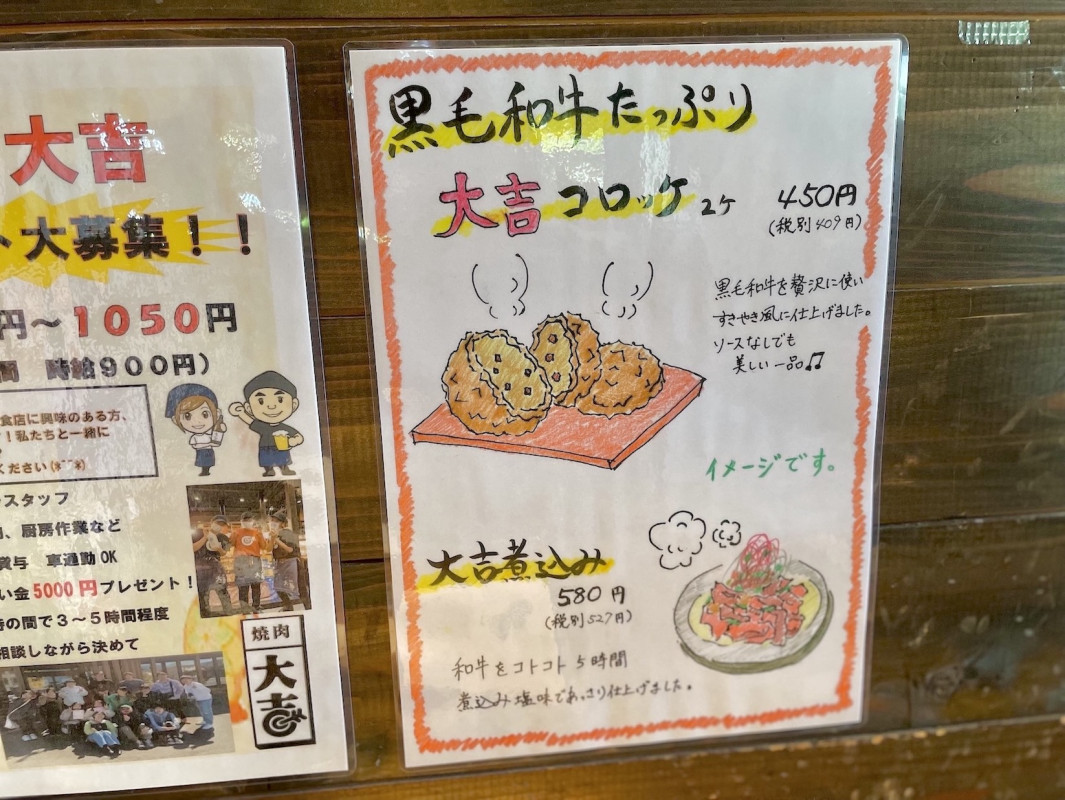 大吉
ト大募集！！
円～1050円
間 時給900円）
食店に興味のある方、
！私たちと一緒に
ください(*^^*)
スタッフ
、厨房作業など
賞与 車通勤OK
い金5000円プレゼント！
時の間で3～5時間程度
相談しながら決めて
焼肉
大吉
黒毛和牛たっぷり
大吉コロッケ 2ケ 450円
(税別409円)
黒毛和牛を贅沢に使い
すきやき風に仕上げました。
ソースなしでも
美しい一品♫
イメージです。
大吉煮込み
580円
(税別527円)
和牛をコトコト5時間
煮込み塩味であっさり仕上げました。